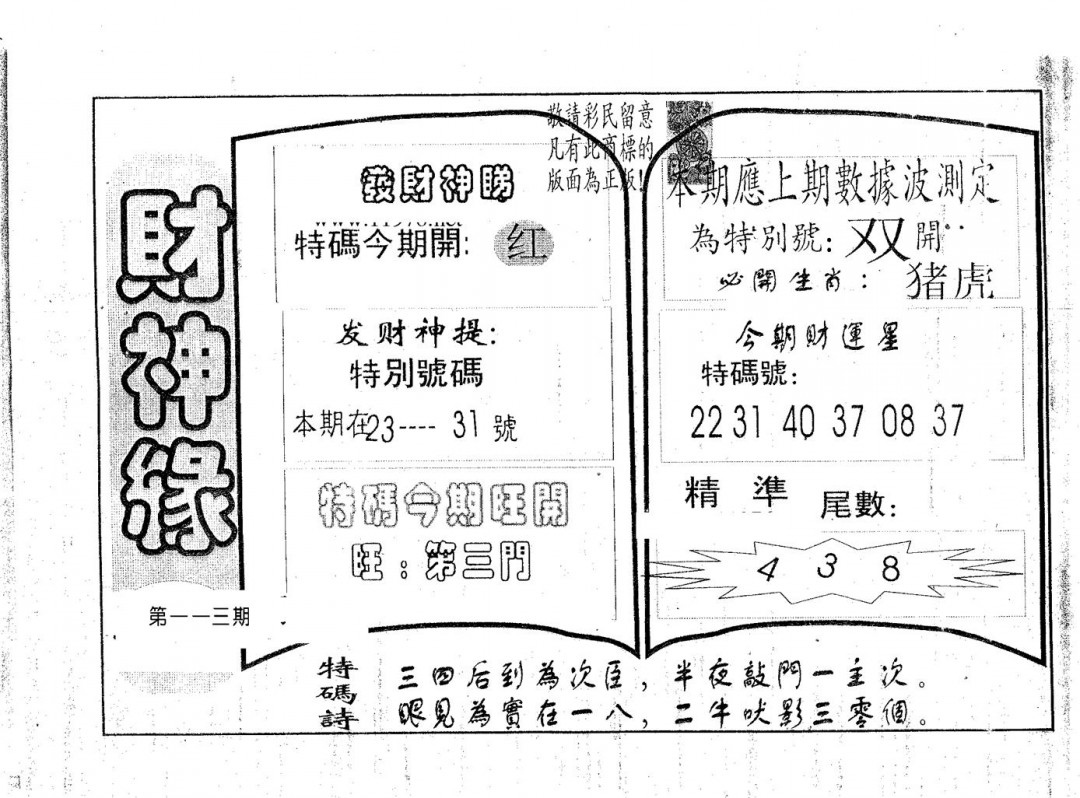 財神緣
第一一三期
敬請彩民留意
凡有此商標的
版面為正版!
發財神睇
特碼今期開: 红
发财神提:
特別號碼
本期在23---- 31 號
特碼今期旺開
旺：第三門
本期應上期數據波測定
為特別號: 双 開
必開生肖: 猪虎
今期財運星
特碼號:
22 31 40 37 08 37
精準 尾數:
4 3 8
特碼詩
三四后到為次臣，半夜敲門一主次。
眼見為實在一八，二牛吠影三零個。